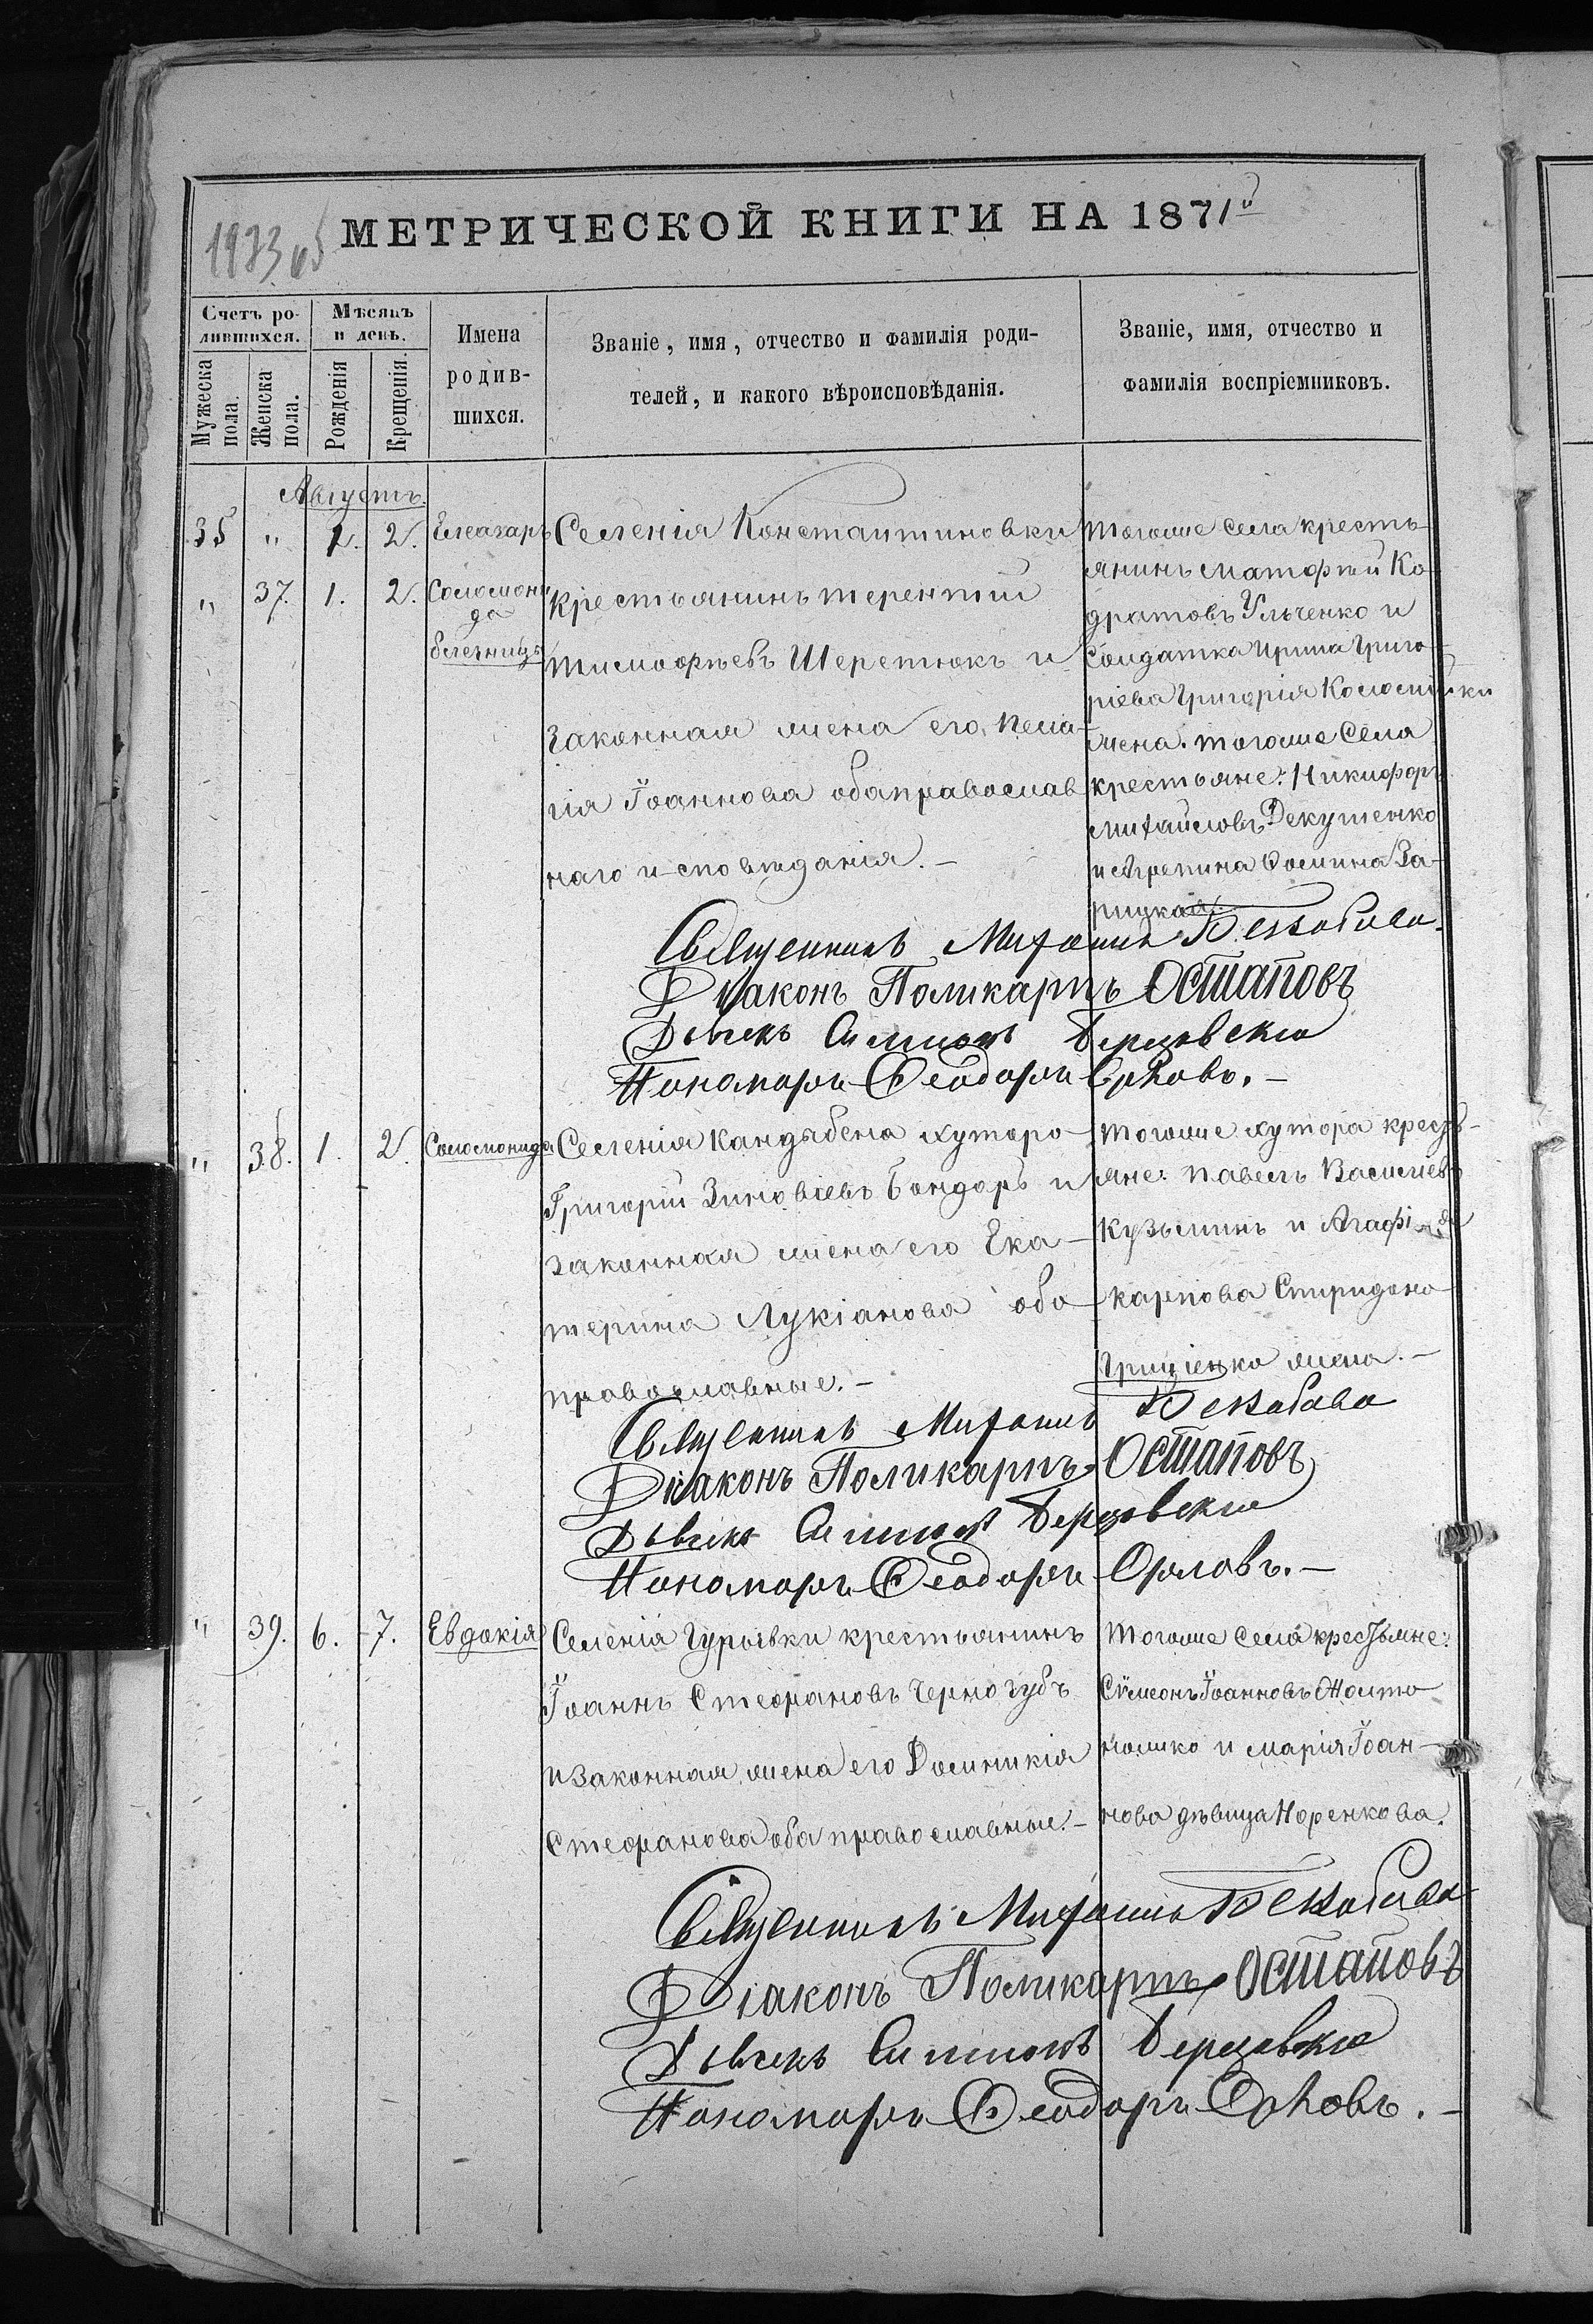 1933 об
МЕТРИЧЕСКОЙ КНИГИ НА 1871й
Счетъ ро-
дившихся.
Мужеска
пола.
Женска
пола.
Мѣсяцъ
и день.
Рожденія
Крещенія.
Имена
родив-
шихся.
Званіе, имя, отчество и фамилія роди-
телей, и какого вѣроисповѣданія.
Званіе, имя, отчество и
фамилія воспріемниковъ.
Августъ.
35 " 1. 2. Елеазаръ
" 37. 1. 2. Соломони
да
близницы
Селенія Константиновки
крестьянинъ терентій
тимофѣевъ Шеретюкъ и
законная жена его, Пела-
гія Іоаннова обаправослав
наго исповѣданія. –
тогоже села кресть-
янинъ матфей Ко-
дратовъ Ильченко и
солдатка ирина Григо-
ріева Григорія Коломійки
жена. тогоже села
крестьяне: Никифоръ
михайловъ Декутенко
и Агрепина Фомина За-
рицкая.
Священникъ Митрофанъ
Діаконъ Поликарпъ Остаповъ
Дьячекъ Симеонъ
Пономарь Феодоръ Орловъ. –
" 38. 1. 2. Соломонида
Селенія Кандыбена хутора
Григорій Зиновіевъ Бондарь и
законная жена его Ека-
терина Лукіанова оба
православные. –
тогоже хутора кресть-
яне: павелъ Василіевъ
Кузьминъ и Агафія
карпова Спиридона
Гриценка жена. –
Священникъ Митрофанъ
Діаконъ Поликарпъ Остаповъ
Дьячекъ Симеонъ
Пономарь Феодоръ Орловъ. –
" 39. 6. 7. Евдокія
Селенія Гурьевки крестьянинъ
Іоаннъ Стефановъ Черногубъ
и законная жена его Домникія
Стефанова оба православные. –
тогоже села крестьяне:
Сѵмеонъ Іоанновъ Жолто
ножко и марія Іоан-
нова дѣвица Норенкова.
Священникъ Митрофанъ
Діаконъ Поликарпъ Остаповъ
Дьячекъ Симеонъ
Пономарь Феодоръ Орловъ. –